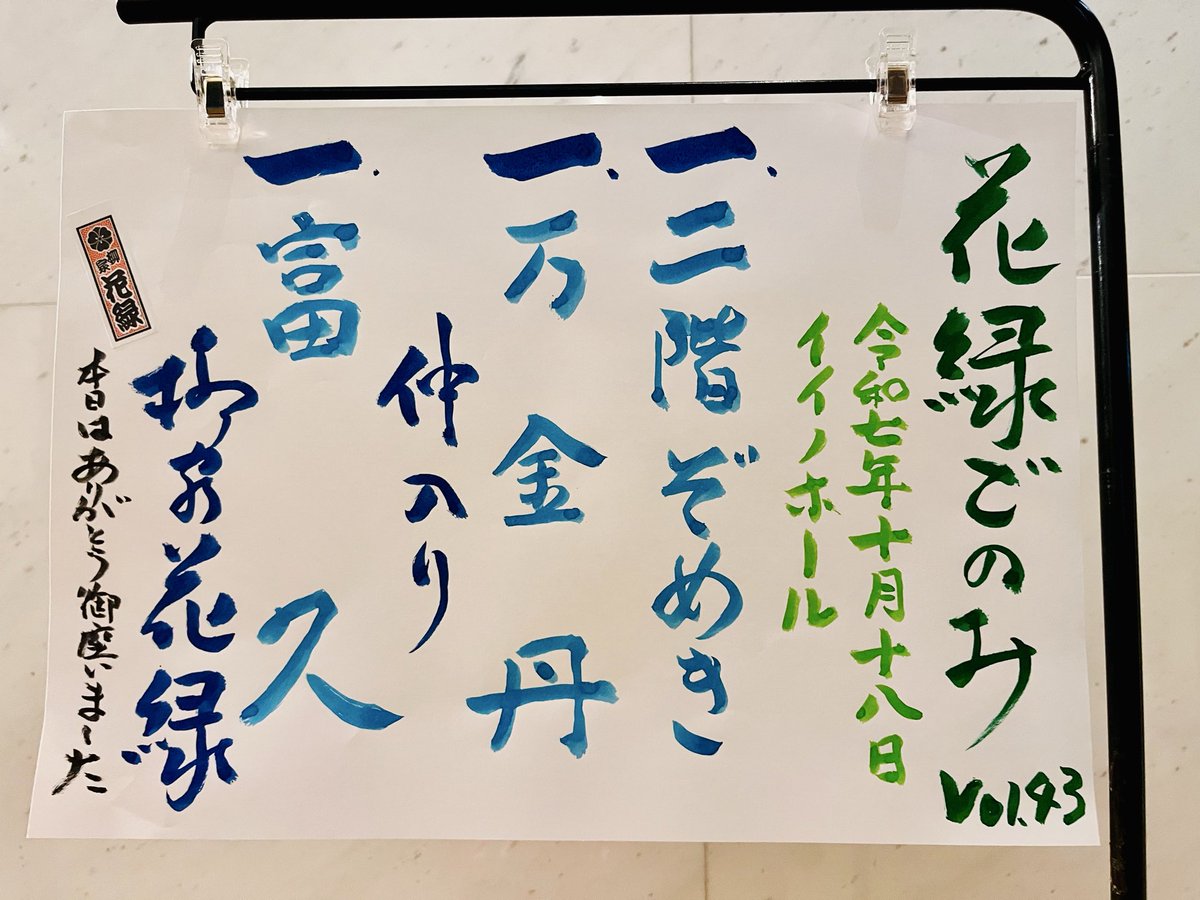 花緑ごのみ Vol.43
令和七年十月十八日
イイノホール
一、二階ぞめき
一、万金丹
仲入り
一、富久
柳家花緑
柳家花緑
本日はありがとう御座いました